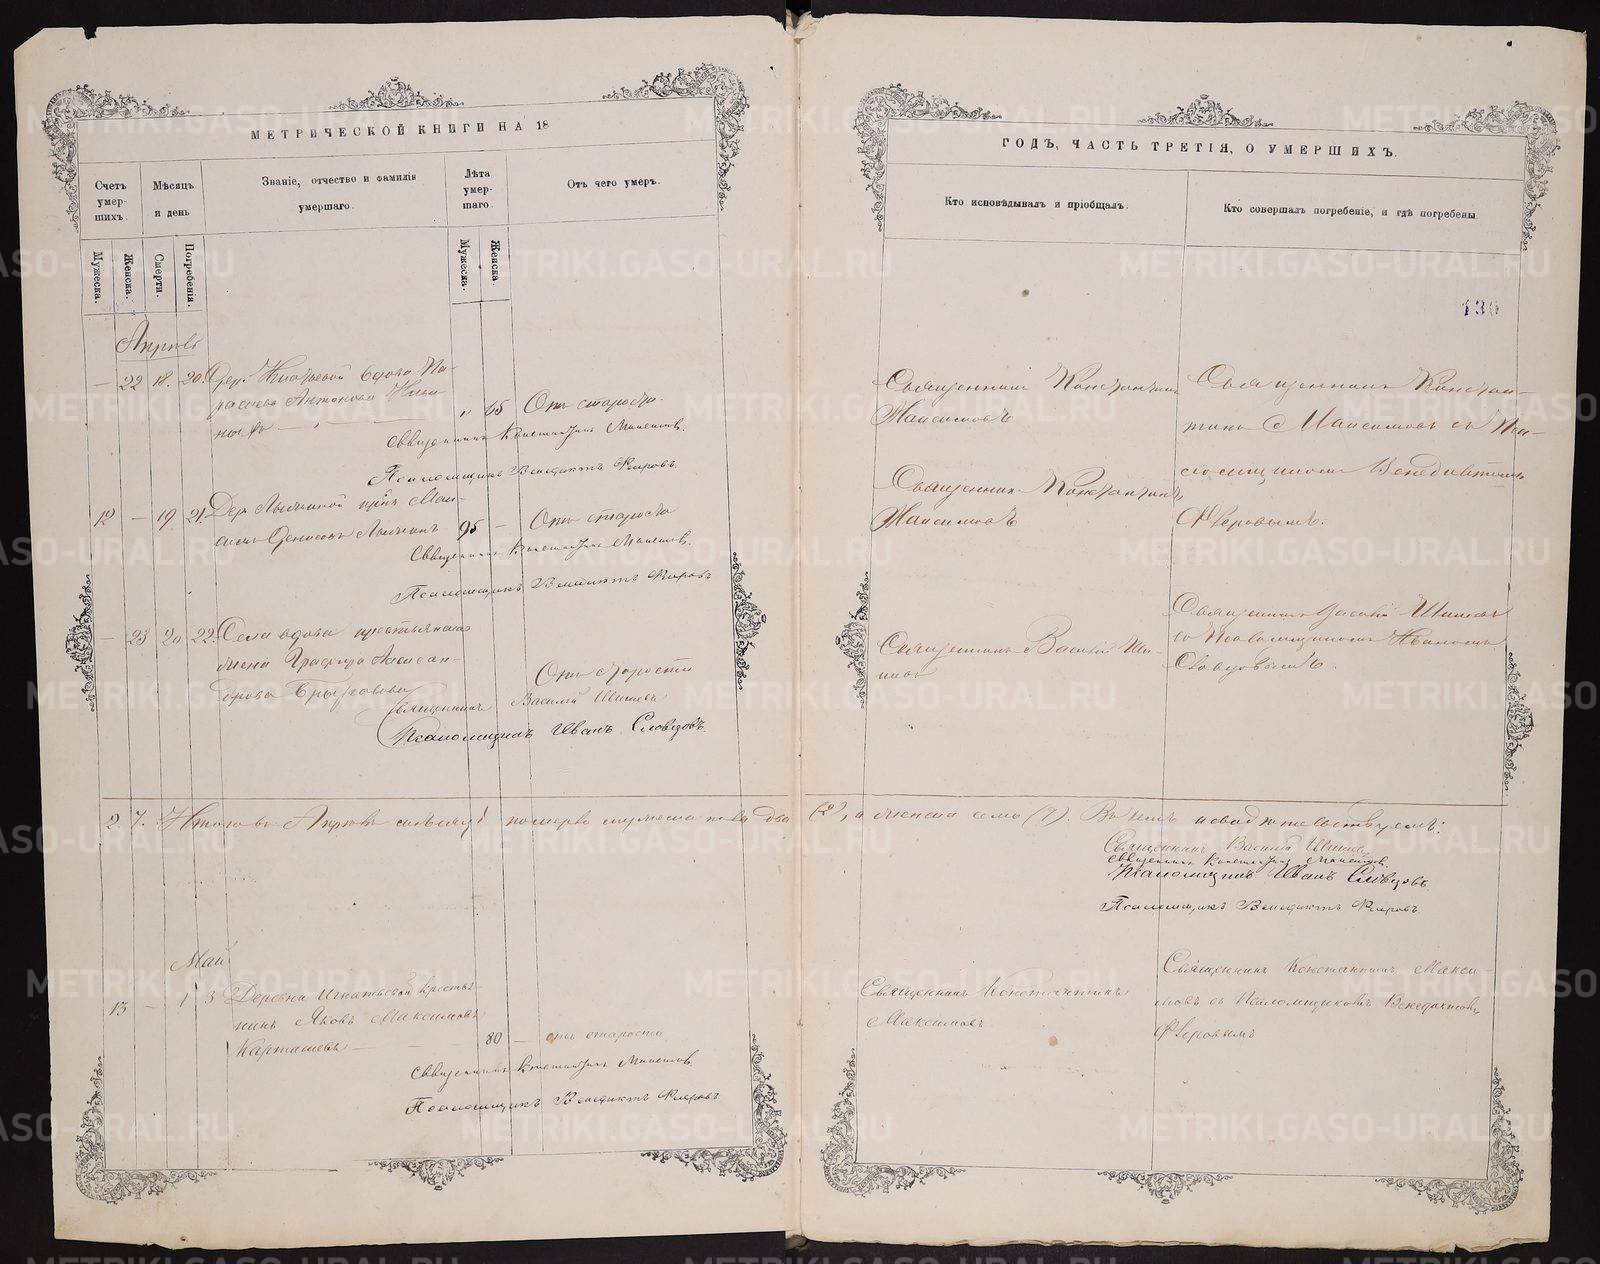 МЕТРИЧЕСКОЙ КНИГИ НА 18
Счетъ умер- шихъ.
Мѣсяцъ и день
Званіе, отчество и фамилія умершаго.
Лѣта умер- шаго.
Отъ чего умеръ.
Мужеска.
Женска.
Смерти.
Погребенія.
Мужеска.
Женска.
Апрѣль
— 22 18. 20. Дер. вдова Па-
65 Отъ старости.
Священникъ Константинъ Максимовъ.
Псаломщикъ Венедиктъ Флеровъ.
12 — 19 21. Дер. Мак-
симъ Денисовъ 95 — Отъ старости
Священникъ Константинъ Максимовъ.
Псаломщикъ Венедиктъ Флеровъ
— 23 20 22. Села вдова крестьянская
жена Александ-
рова Отъ старости
Священникъ Василій Шишевъ
Псаломщикъ Иванъ Словцовъ.
2 7. Итого въ Апрѣлѣ померло мужеска пола два
Май
13 — 1 3 Деревни Игнатьевой крестья-
нинъ Яковъ Максимовъ
Карташевъ — 80 — отъ старости
Священникъ Константинъ Максимовъ
Псаломщикъ Венедиктъ Флеровъ
ГОДЪ, ЧАСТЬ ТРЕТІЯ, О УМЕРШИХЪ.
Кто исповѣдывалъ и пріобщалъ.
Кто совершалъ погребеніе, и гдѣ погребены.
136
Священникъ Константинъ
Максимовъ
Священникъ Констан-
тинъ Максимовъ съ Пса-
ломщикомъ Венедиктомъ
Флеровымъ.
Священникъ Константинъ
Максимовъ
Священникъ Василій Ши-
шевъ
Священникъ Василій Шишевъ
съ Псаломщикомъ Иваномъ
Словцовымъ.
(2), а женска семь (7). Въ чемъ и свидѣтельствуемъ:
Священникъ Василій Шишевъ
Священникъ Константинъ Максимовъ
Псаломщикъ Иванъ Словцовъ
Псаломщикъ Венедиктъ Флеровъ
Священникъ Константинъ
Максимовъ
Священникъ Константинъ Макси-
мовъ съ Псаломщикомъ Венедиктомъ
Флеровымъ
METRIKI.GASO-URAL.RU